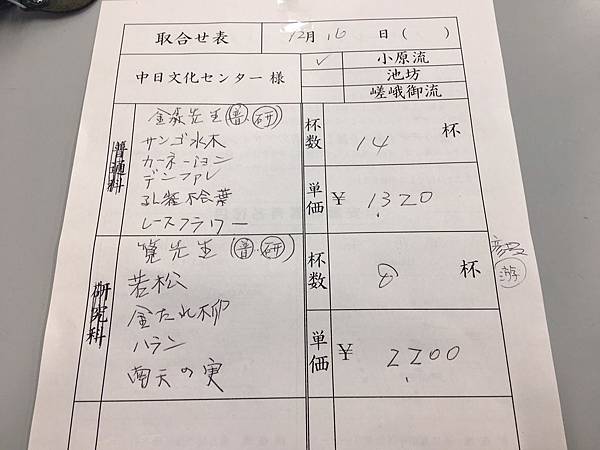 取合せ表 12月 16 日 ( )
中日文化センター 様
✓ 小原流
池坊
嵯峨御流
普通科
金森先生 (普・研)
サンゴ水木
カーネーション
デンファレ
レースフラワー
杯数 14 杯
単価 ¥ 1,320
研究科
筧先生 (普・研)
若松
金たれ柳
ハラン
南天の実
杯数 8 杯
単価 ¥ 2,200
游